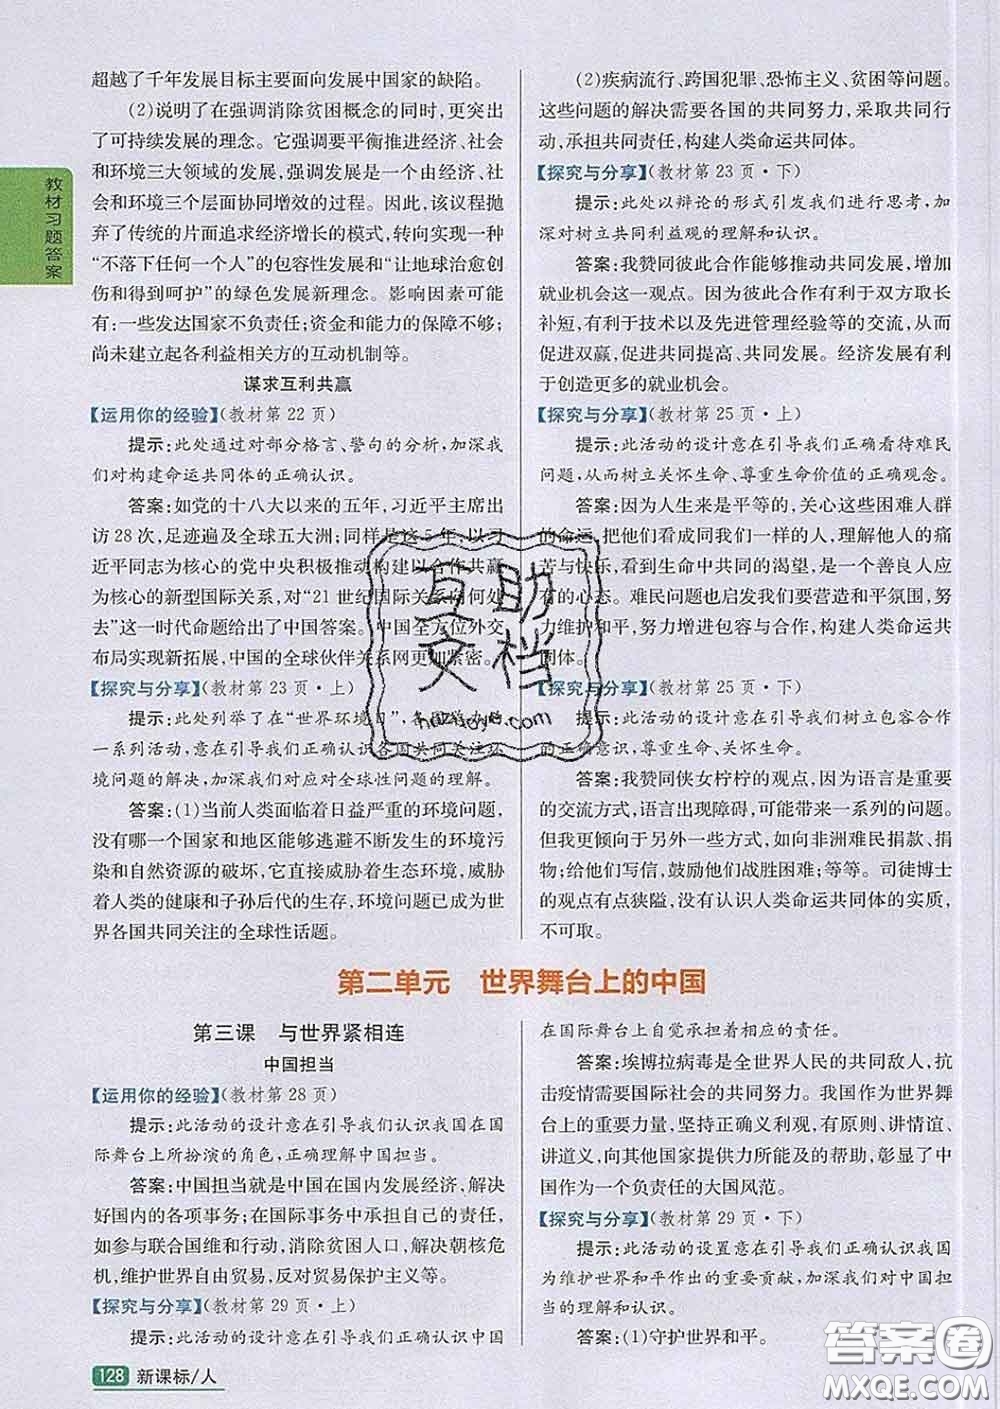 教材习题答案
超越了千年发展目标主要面向发展中国家的缺陷。
(2)说明了在强调消除贫困概念的同时,更突出
了可持续发展的理念。它强调要平衡推进经济、社会
和环境三大领域的发展,强调发展是一个由经济、社
会和环境三个层面协同增效的过程。因此,该议程抛
弃了传统的片面追求经济增长的模式,转向实现一种
“不落下任何一个人”的包容性发展和“让地球治愈创
伤和得到呵护”的绿色发展新理念。影响因素可能
有:一些发达国家不负责任;资金和能力的保障不够;
尚未建立起各利益相关方的互动机制等。
谋求互利共赢
【运用你的经验】(教材第22页)
提示:此处通过对部分格言、警句的分析,加深我
们对构建命运共同体的正确认识。
答案:如党的十八大以来的五年,习近平主席出
访28次,足迹遍及全球五大洲;同样是这5年,以习
近平同志为核心的党中央积极推动构建以合作共赢
为核心的新型国际关系,对“21世纪国际关系向何处
去”这一时代命题给出了中国答案。中国全方位外交
布局实现新拓展,中国的全球伙伴关系网更加紧密。
【探究与分享】(教材第23页·上)
提示:此处列举了在“世界环境日”,各国举办的
一系列活动,意在引导我们正确认识各国共同关注环
境问题的解决,加深我们对应对全球性问题的理解。
答案:(1)当前人类面临着日益严重的环境问题,
没有哪一个国家和地区能够逃避不断发生的环境污
染和自然资源的破坏,它直接威胁着生态环境,威胁
着人类的健康和子孙后代的生存,环境问题已成为世
界各国共同关注的全球性话题。
(2)疾病流行、跨国犯罪、恐怖主义、贫困等问题。
这些问题的解决需要各国的共同努力,采取共同行
动,承担共同责任,构建人类命运共同体。
【探究与分享】(教材第23页·下)
提示:此处以辩论的形式引发我们进行思考,加
深对树立共同利益观的理解和认识。
答案:我赞同彼此合作能够推动共同发展,增加
就业机会这一观点。因为彼此合作有利于双方取长
补短,有利于技术以及先进管理经验等的交流,从而
促进双赢,促进共同提高、共同发展。经济发展有利
于创造更多的就业机会。
【探究与分享】(教材第25页·上)
提示:此活动的设计意在引导我们正确看待难民
问题,从而树立关怀生命、尊重生命价值的正确观念。
答案:因为人生来是平等的,关心这些困难人群
的命运,把他们看成同我们一样的人,理解他人的痛
苦与快乐,看到生命中共同的渴望,是一个善良人应
有的心态。难民问题也启发我们要营造和平氛围,努
力维护和平,努力增进包容与合作,构建人类命运共
同体。
【探究与分享】(教材第25页·下)
提示:此活动的设计意在引导我们树立包容合作
的正确意识,尊重生命、关怀生命。
答案:我赞同侠女柠柠的观点,因为语言是重要
的交流方式,语言出现障碍,可能带来一系列的问题。
但我更倾向于另外一些方式,如向非洲难民捐款、捐
物;给他们写信,鼓励他们战胜困难;等等。司徒博士
的观点有点狭隘,没有认识人类命运共同体的实质,
不可取。
第二单元 世界舞台上的中国
第三课 与世界紧相连
中国担当
【运用你的经验】(教材第28页)
提示:此活动的设计意在引导我们认识我国在国
际舞台上所扮演的角色,正确理解中国担当。
答案:中国担当就是中国在国内发展经济、解决
好国内的各项事务;在国际事务中承担自己的责任,
如参与联合国维和行动,消除贫困人口,解决朝核危
机,维护世界自由贸易,反对贸易保护主义等。
【探究与分享】(教材第29页·上)
提示:此活动的设计意在引导我们正确认识中国
在国际舞台上自觉承担着相应的责任。
答案:埃博拉病毒是全世界人民的共同敌人,抗
击疫情需要国际社会的共同努力。我国作为世界舞
台上的重要力量,坚持正确义利观,有原则、讲情谊、
讲道义,向其他国家提供力所能及的帮助,彰显了中
国作为一个负责任的大国风范。
【探究与分享】(教材第29页·下)
提示:此活动的设置意在引导我们正确认识我国
为维护世界和平作出的重要贡献,加深我们对中国担
当的理解和认识。
答案:(1)守护世界和平。
128 新课标/人
互助文档
hnzwoye.com
答案圈
MXQE.COM